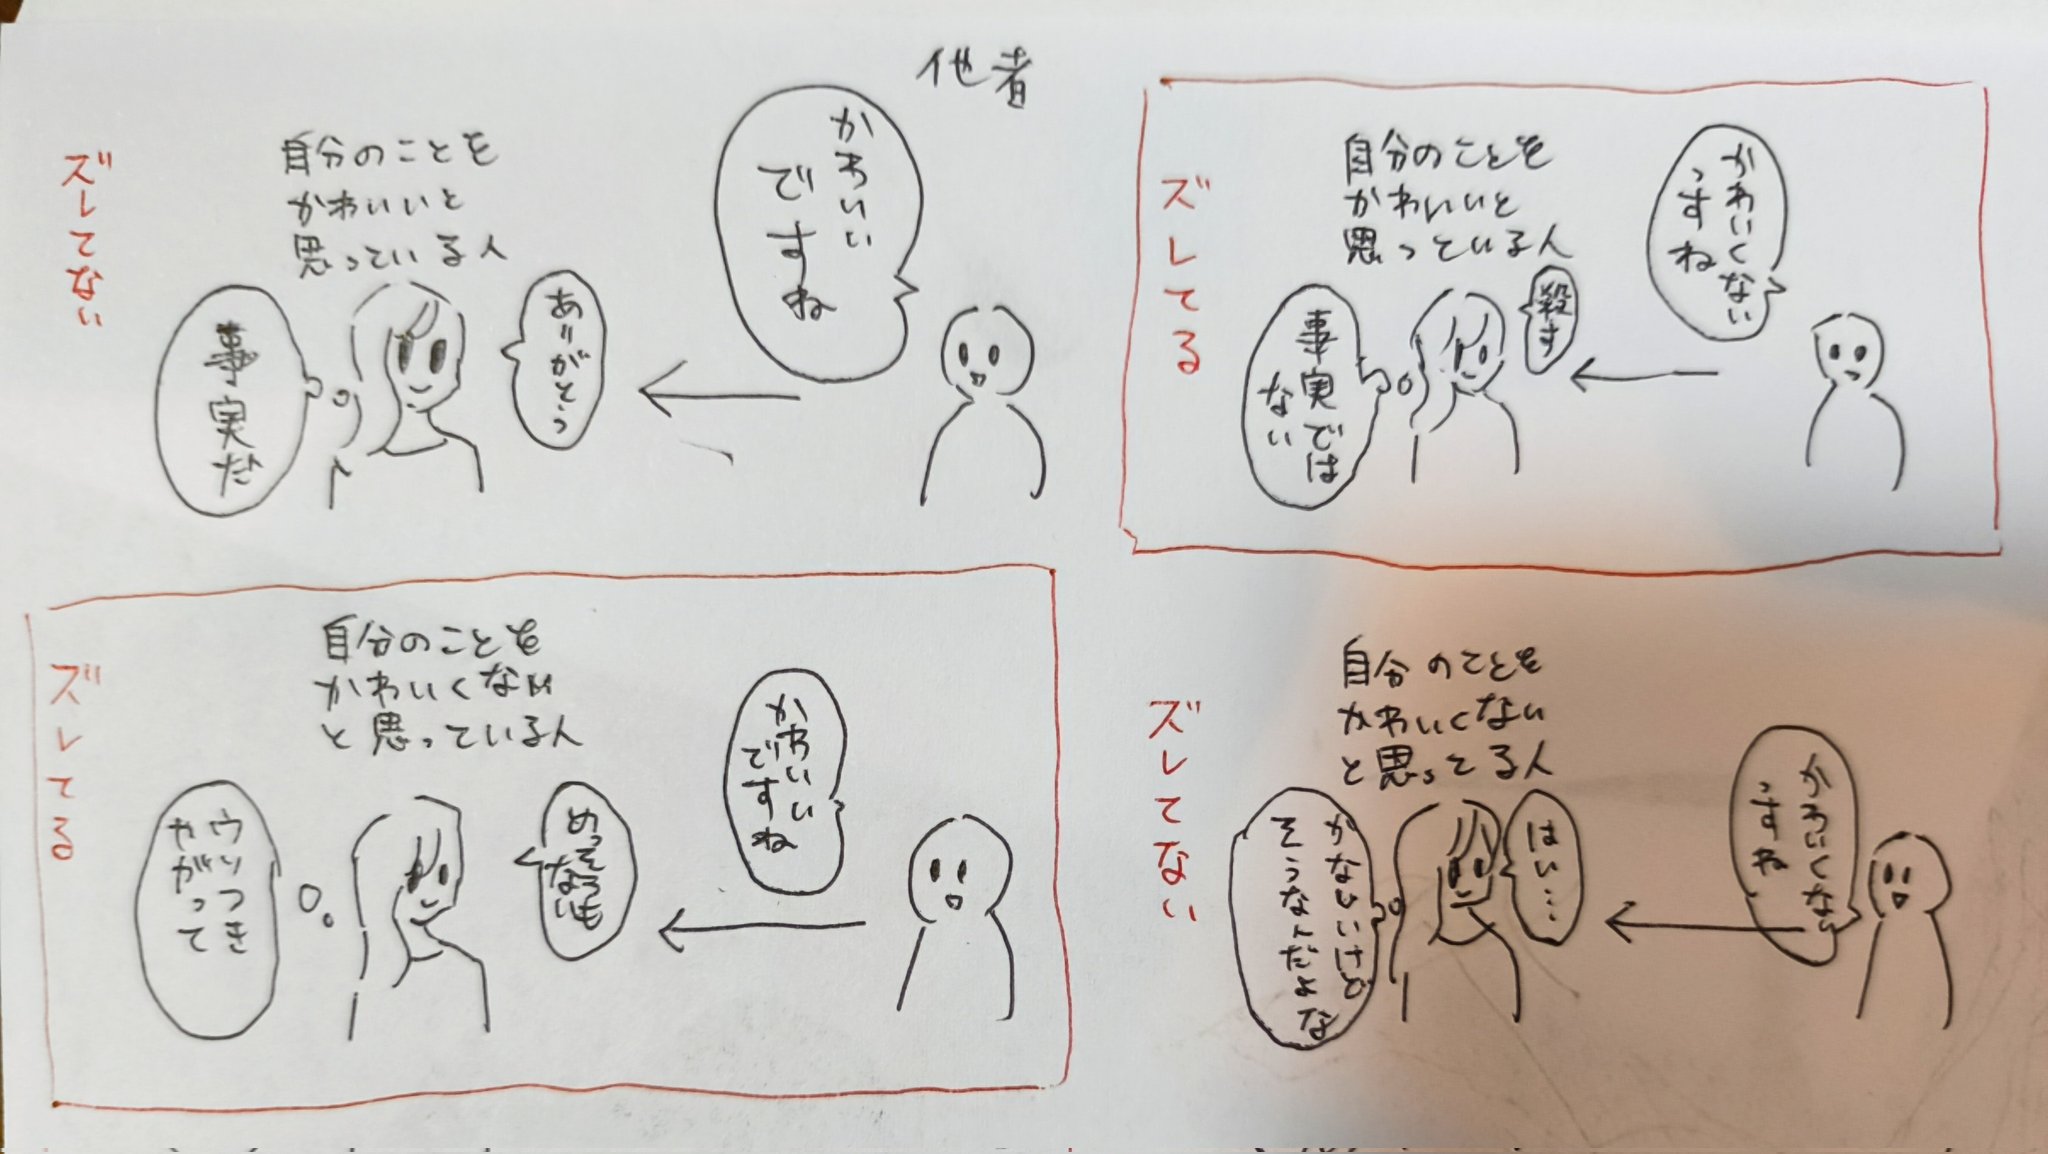 他者
ズレてない
自分のことを
かわいいと
思っている人
かわいい
ですね
ありがとう
事実だ
ズレてる
自分のことを
かわいいと
思っている人
かわいくない
っすね
殺す
事実では
ない
ズレてる
自分のことを
かわいくない
と思っている人
かわいい
ですね
めっそうも
ない
ウソつき
やがって
ズレてない
自分のことを
かわいくない
と思ってる人
かわいくない
っすね
はい…
かないいけど
そうなんだよな